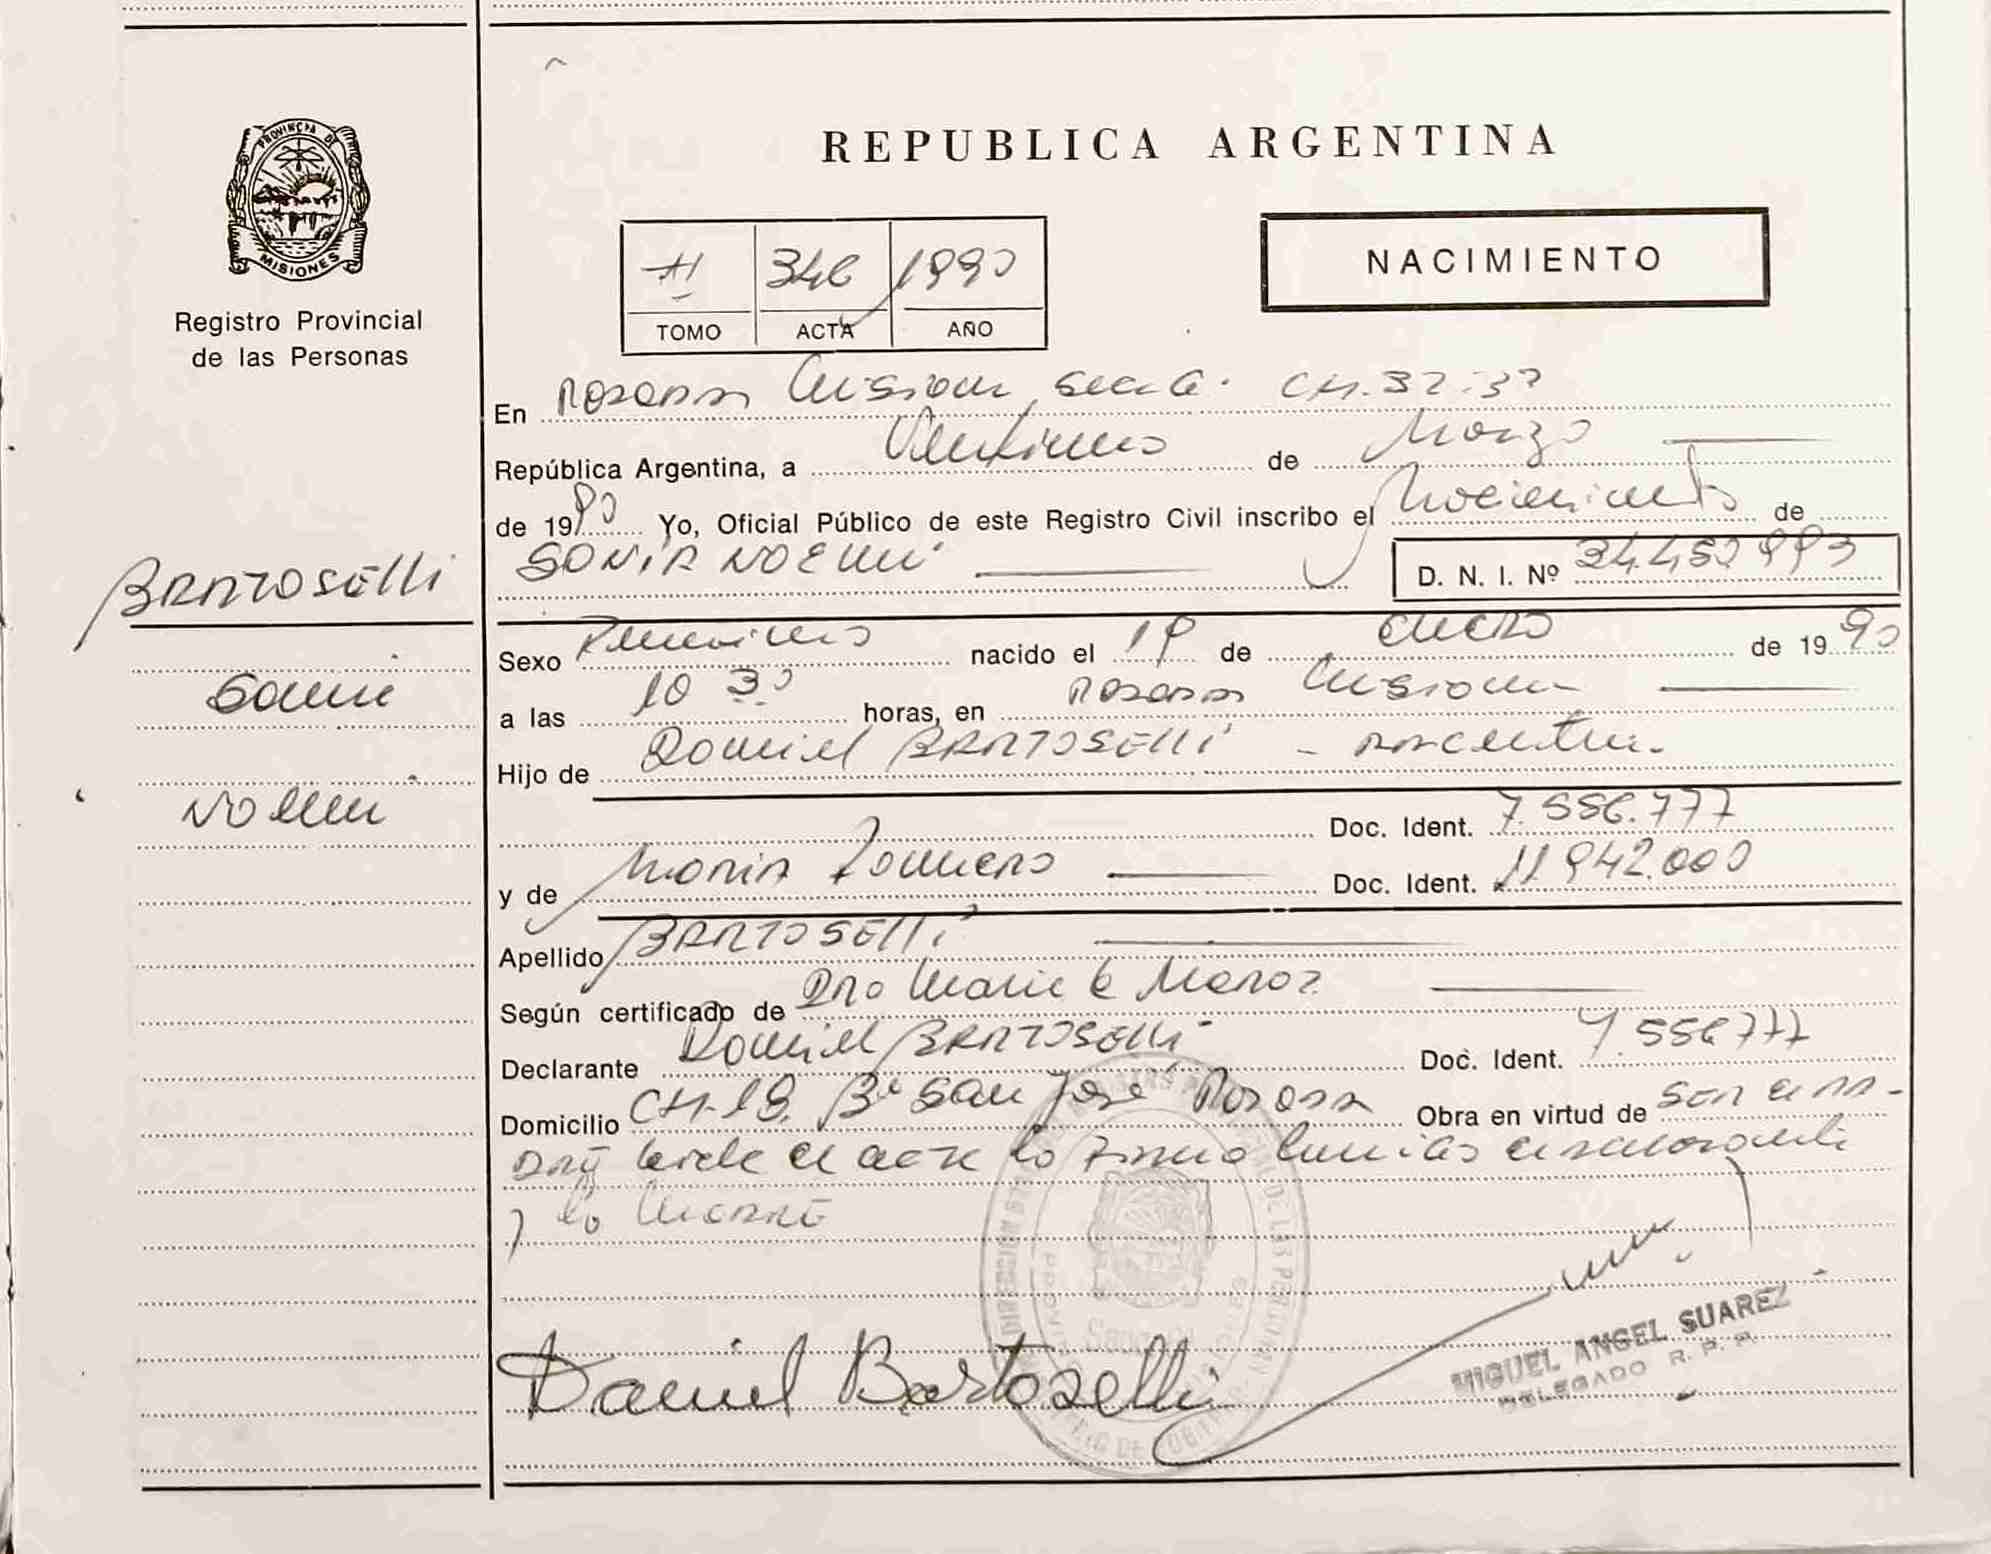 PROVINCIA DE
MISIONES
Registro Provincial
de las Personas
REPUBLICA ARGENTINA
NACIMIENTO
346 1990
TOMO ACTA AÑO
En Posadas Misiones
República Argentina, a de Marzo
de 1990 Yo, Oficial Público de este Registro Civil inscribo el Nacimiento de
SONIA NOEMI
D. N. I. Nº 34.450.993
BARTOSELLI
Sonia
Noemi
Sexo Femenino nacido el 19 de enero de 1990
a las 10 30 horas, en Posadas Misiones
Hijo de Daniel BARTOSELLI - argentino.
Doc. Ident. 7.556.777
y de Maria Romero Doc. Ident. 11.942.000
Apellido BARTOSELLI
Según certificado de Dra
Declarante Daniel BARTOSELLI Doc. Ident. 7.556.777
Domicilio CH. 18. Bº San José Posadas Obra en virtud de ser el pa-
dre, leida el acta la firma
y la madre
Daniel Bartoselli
MIGUEL ANGEL SUAREZ
DELEGADO R. P. P.